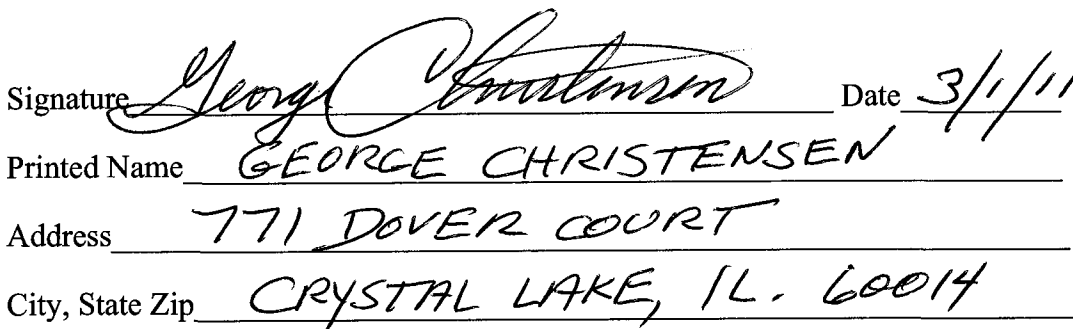 Signature George Christensen Date 3/1/11
Printed Name GEORGE CHRISTENSEN
Address 771 DOVER COURT
City, State Zip CRYSTAL LAKE, IL. 60014